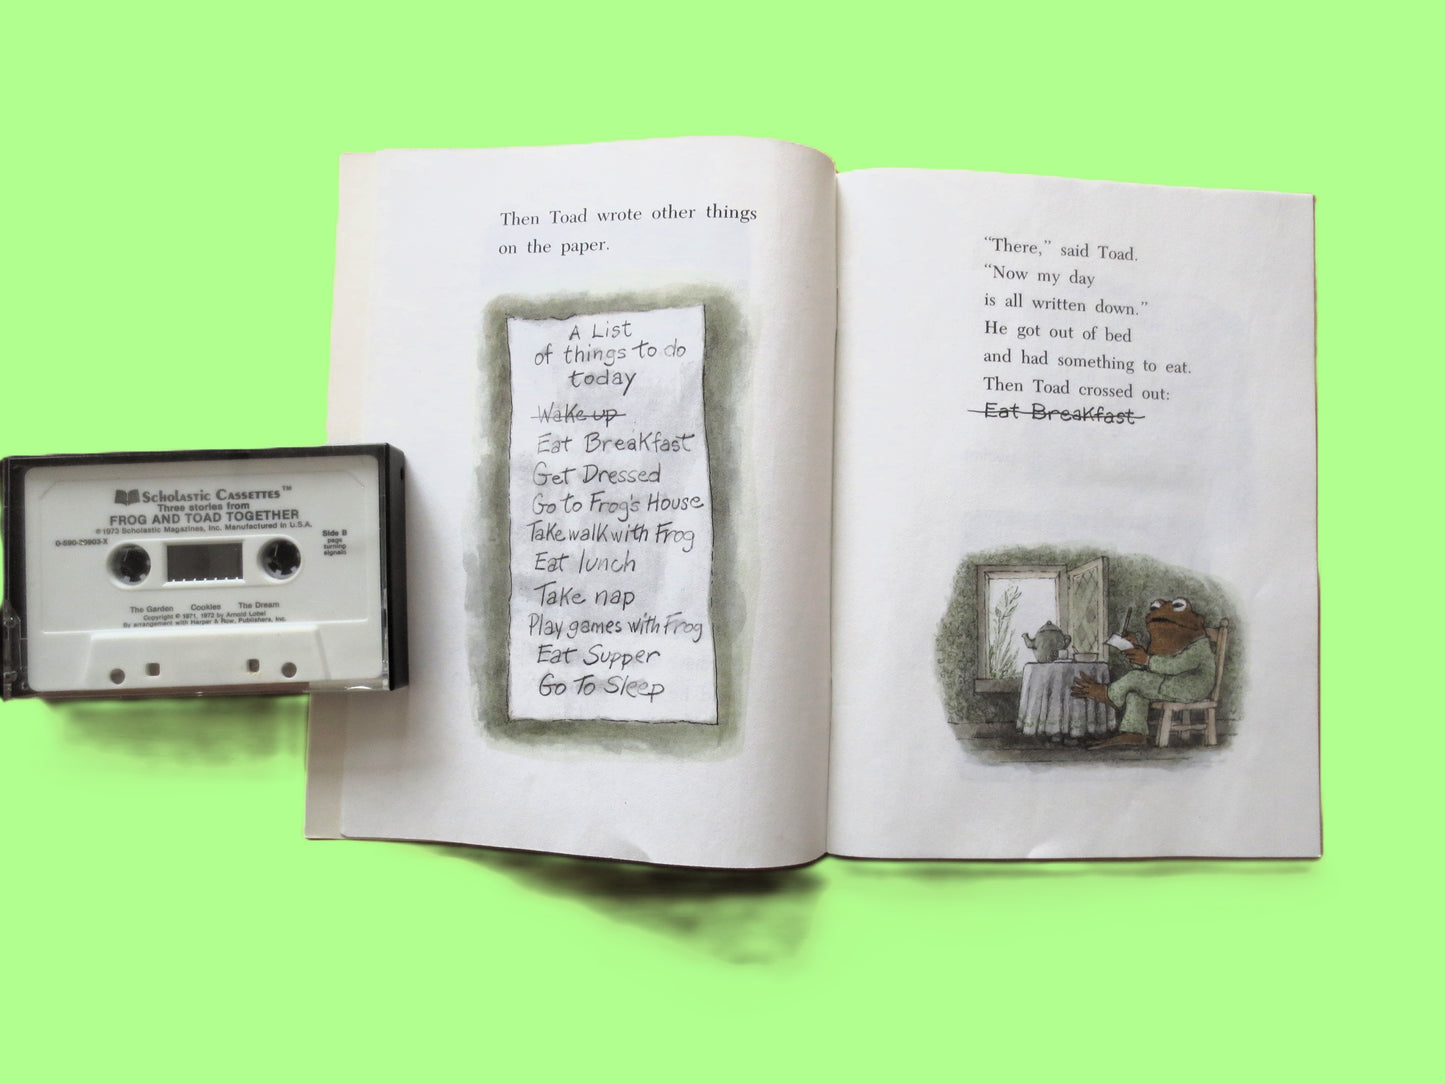 Scholastic Cassettes™
Three stories from
FROG AND TOAD TOGETHER
©1973 Scholastic Magazines, Inc. Manufactured in U.S.A.
0-590-20903-X
Side B
page
turning
signals
The Garden Cookies The Dream
Copyright © 1971, 1972 by Arnold Lobel
By arrangement with Harper & Row, Publishers, Inc.
Then Toad wrote other things
on the paper.
A List
of things to do
today
Wake up
Eat Breakfast
Get Dressed
Go to Frog's House
Take walk with Frog
Eat lunch
Take nap
Play games with Frog
Eat Supper
Go To Sleep
“There,” said Toad.
“Now my day
is all written down.”
He got out of bed
and had something to eat.
Then Toad crossed out:
Eat Breakfast